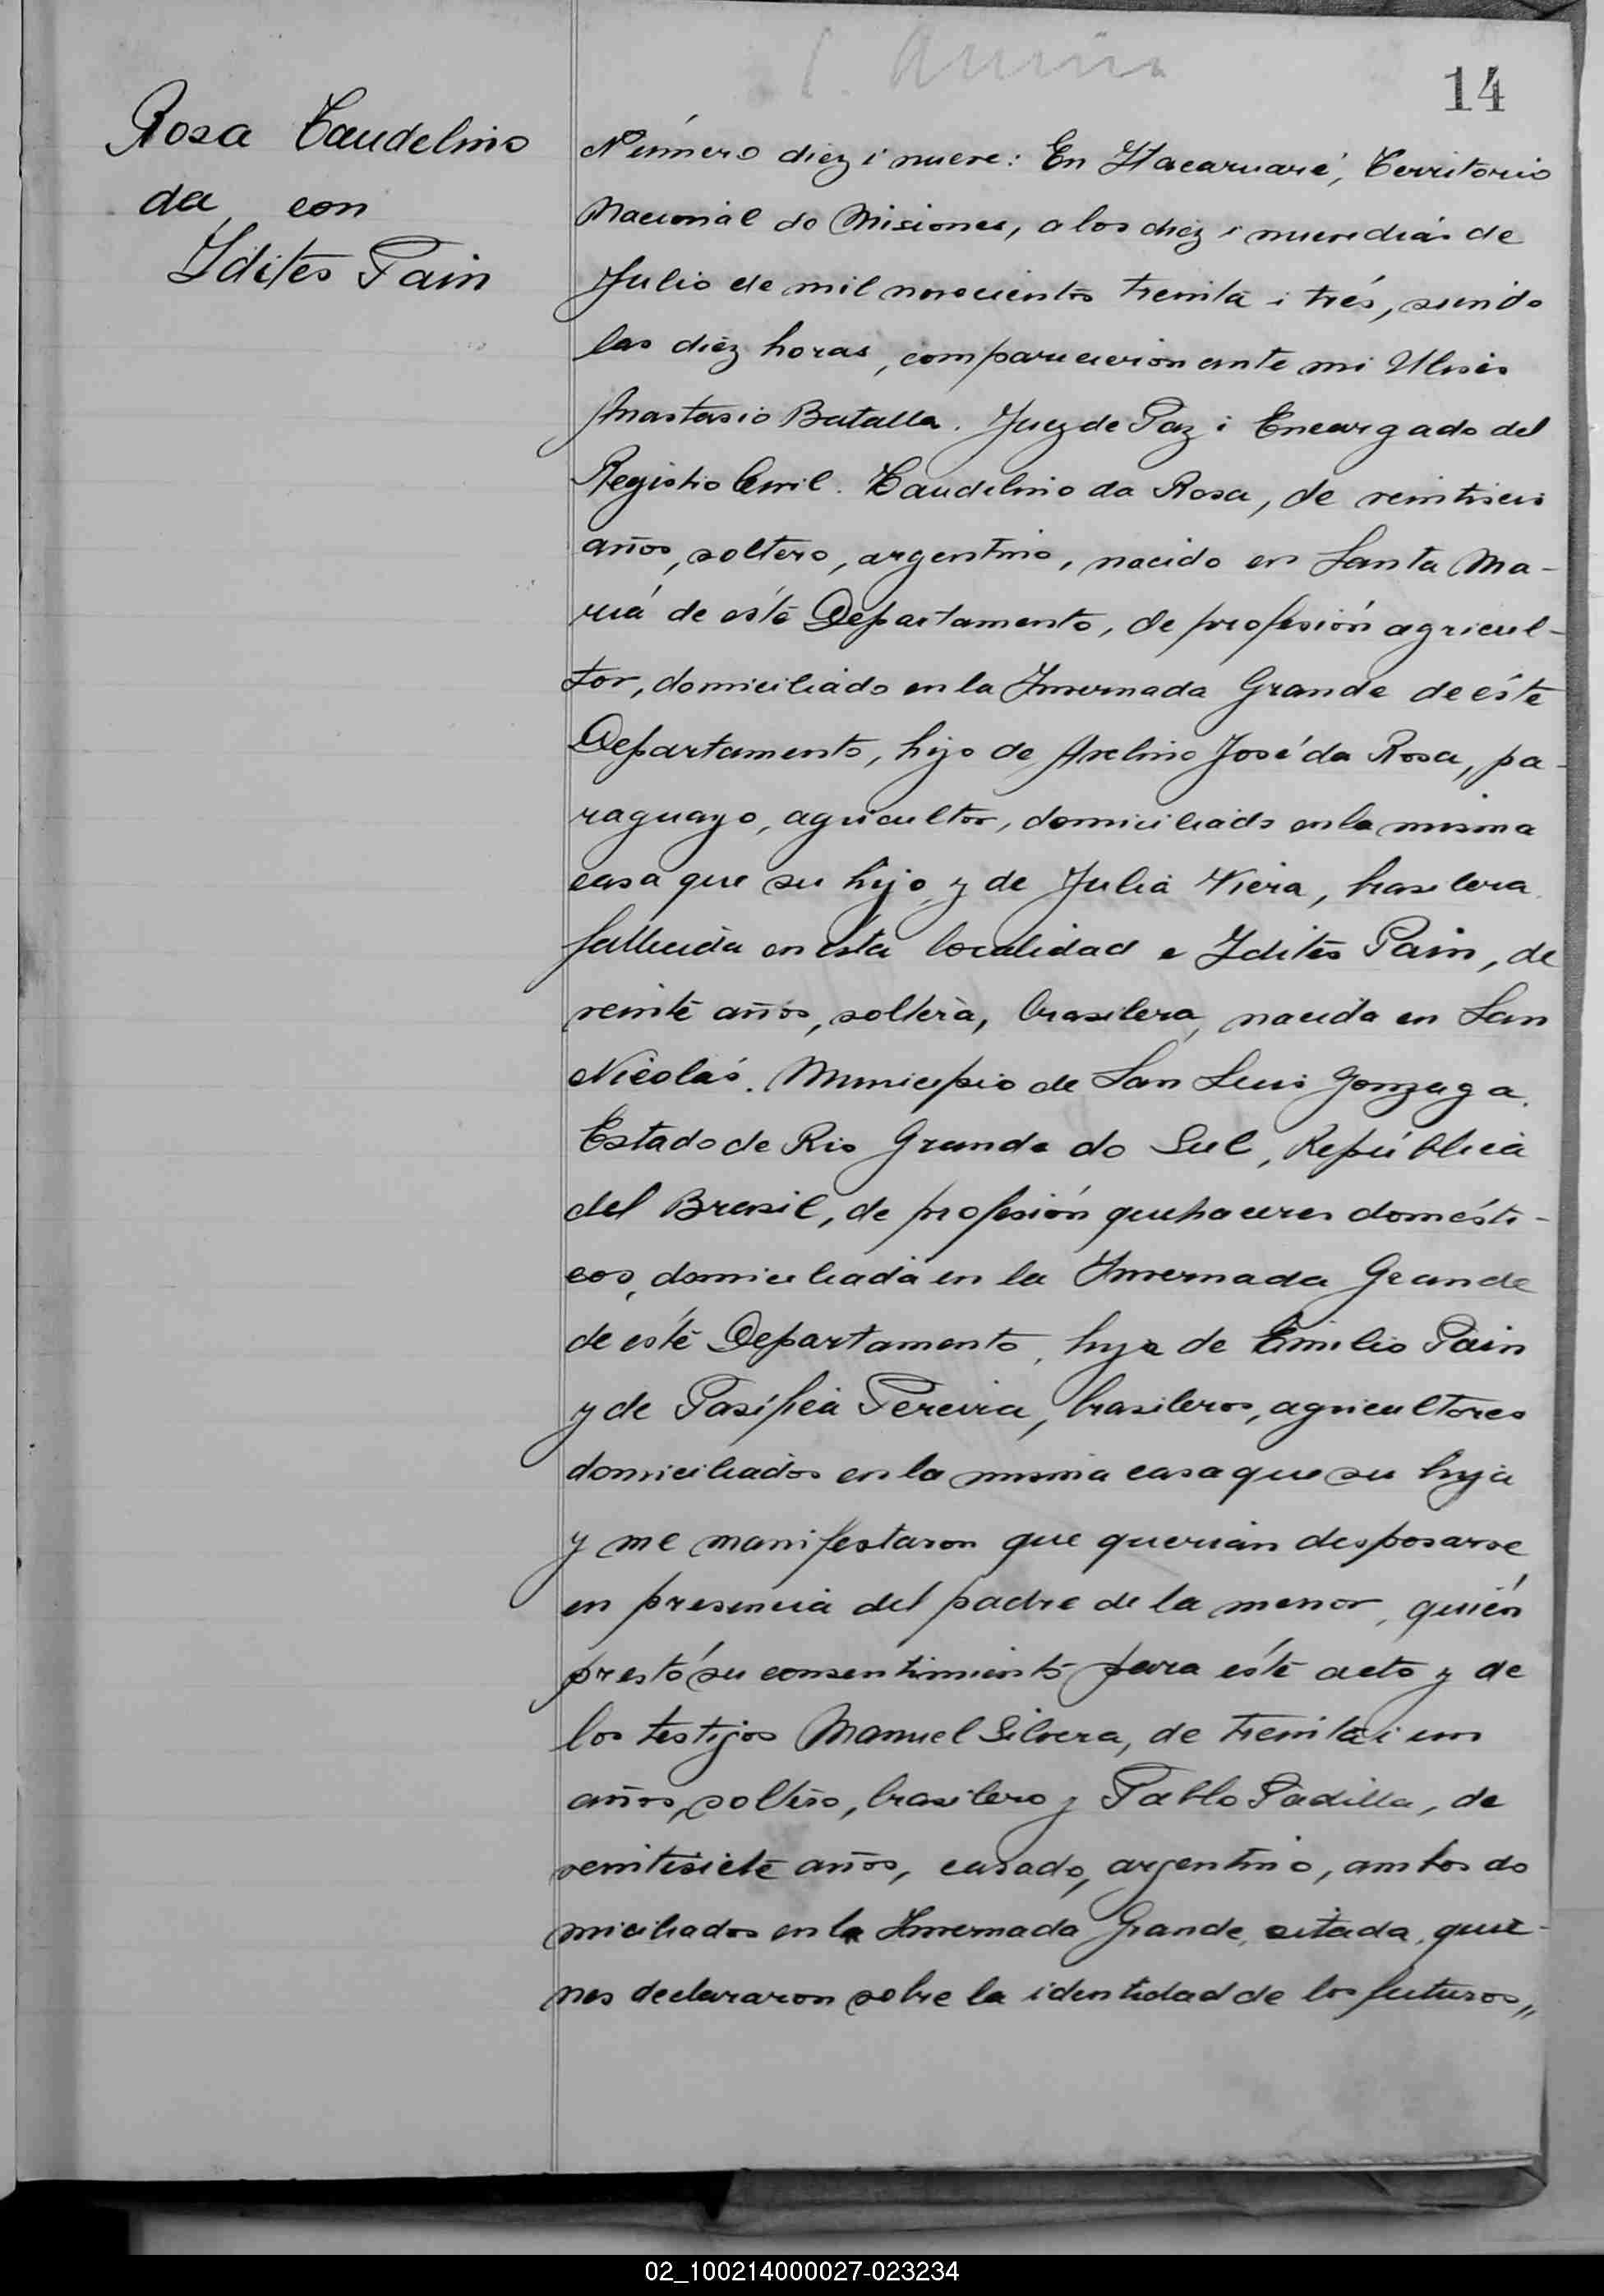 14
Rosa Taudelino
da con
Idites Pain
Número diez i nueve: En Itacaruaré, Territorio
Nacional de Misiones, a los diez i nueve dias de
Julio de mil novecientos treinta i trés, siendo
las diez horas, comparecieron ante mi Ulises
Anastasio Batalla. Juez de Paz i Encargado del
Registro Civil. Taudelino da Rosa, de veintiseis
años, soltero, argentino, nacido en Santa Ma-
ria de éste Departamento, de profesión agricul-
tor, domiciliado en la Invernada Grande de éste
Departamento, hijo de Avelino José da Rosa, pa-
raguayo, agricultor, domiciliado en la misma
casa que su hijo y de Julia Viera, brasilera
fallecida en ésta localidad e Idites Pain, de
veinte años, soltera, brasilera, nacida en San
Nicolás. Municipio de San Luis Gonzaga.
Estado de Rio Grande do Sul, República
del Brasil, de profesión quehaceres domésti-
cos, domiciliada en la Invernada Grande
de éste Departamento, hija de Emilio Pain
y de Pasífica Pereira, brasileros, agricultores
domiciliados en la misma casa que su hija
y me manifestaron que querian desposarse
en presencia del padre de la menor, quién
prestó su consentimiento para éste acto y de
los testigos Manuel Silvera, de treinta i un
años, soltero, brasilero y Pablo Padilla, de
veintisiete años, casado, argentino, ambos do
miciliados en la Invernada Grande, citada, quie-
nes declararon sobre la identidad de los futuros,,
02_100214000027-023234